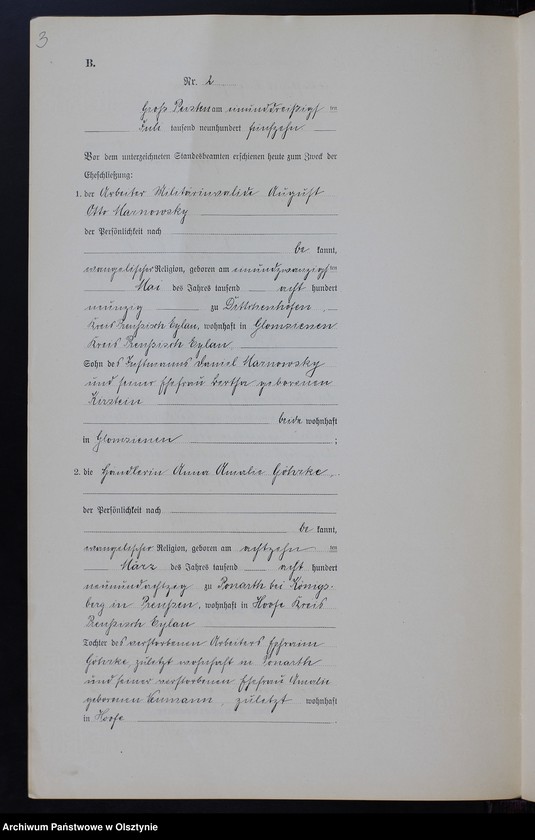 3
B.
Nr. 2
Groß Peisten am einunddreißigsten
Juli tausend neunhundert fünfzehn
Vor dem unterzeichneten Standesbeamten erschienen heute zum Zweck der
Eheschließung:
1. der Arbeiter Militärinvalide August
Otto Marnowsky
der Persönlichkeit nach
be kannt,
evangelischer Religion, geboren am einundzwanzigsten
Mai des Jahres tausend acht hundert
neunzig zu
Kreis Preußisch Eylau, wohnhaft in Glomsienen
Kreis Preußisch Eylau
Sohn des Instmanns Daniel Marnowsky
und seiner Ehefrau Bertha geborenen
Kirstein
beide wohnhaft
in Glomsienen ;
2. die Händlerin Anna Amalie Göhrke
der Persönlichkeit nach
be kannt,
evangelischer Religion, geboren am achtzehn ten
März des Jahres tausend acht hundert
neunundachtzig zu Ponarth bei Königs-
berg in Preußen, wohnhaft in Hoofe Kreis
Preußisch Eylau
Tochter des verstorbenen Arbeiters Ephraim
Göhrke, zuletzt wohnhaft in Ponarth
und seiner verstorbenen Ehefrau Amalie
geborenen Neumann, zuletzt wohnhaft
in Hoofe
Archiwum Państwowe w Olsztynie